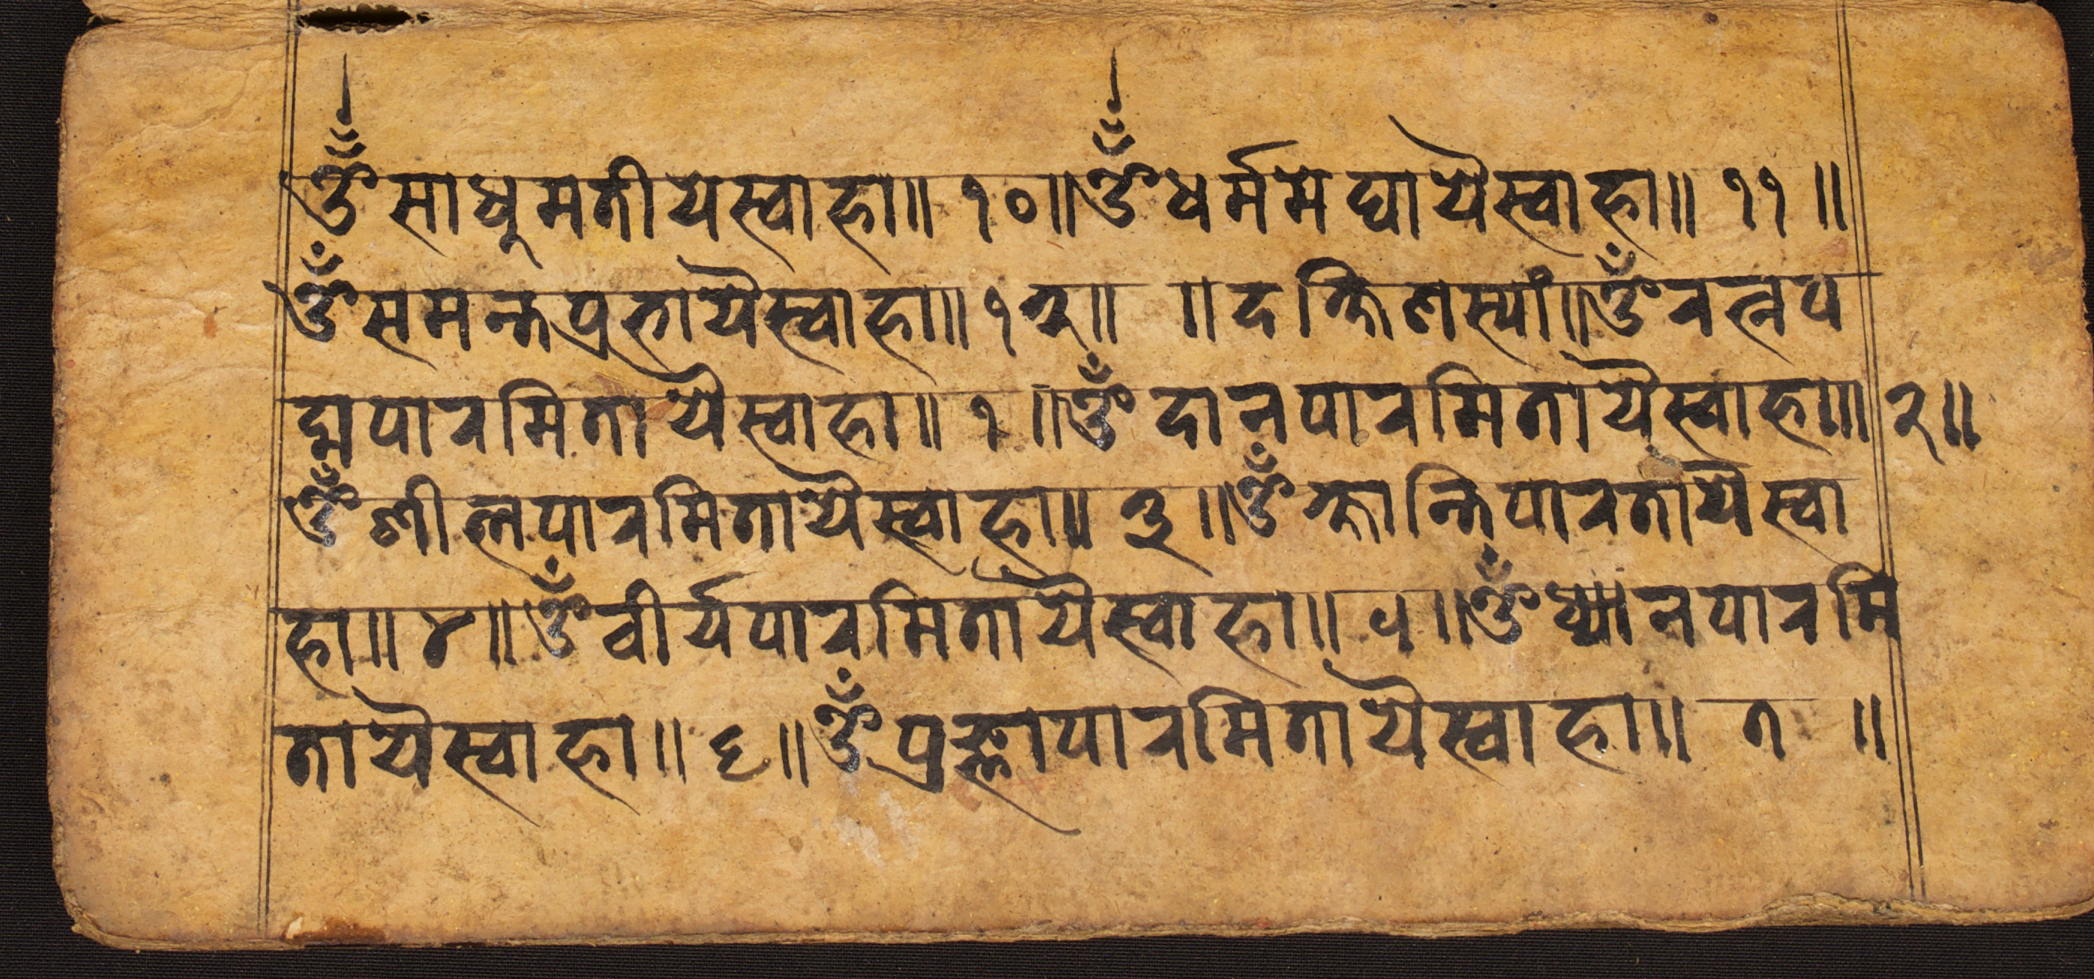 ॐ साधुमतीयेस्वाहा॥ १०॥ ॐ धर्ममेघायैस्वाहा॥ ११॥
ॐ समन्तप्रभायैस्वाहा॥ १२॥ ॥दक्षिणस्यां॥ ॐ रत्नप
द्मपारमितायैस्वाहा॥ १॥ ॐ दानपारमितायैस्वाहा॥ २॥
ॐ शीलपारमितायैस्वाहा॥ ३॥ ॐ क्षान्तिपारतायैस्वा
हा॥ ४॥ ॐ वीर्यपारमितायैस्वाहा॥ ५॥ ॐ ध्यानपारमि
तायैस्वाहा॥ ६॥ ॐ प्रज्ञापारमितायैस्वाहा॥ ७ ॥